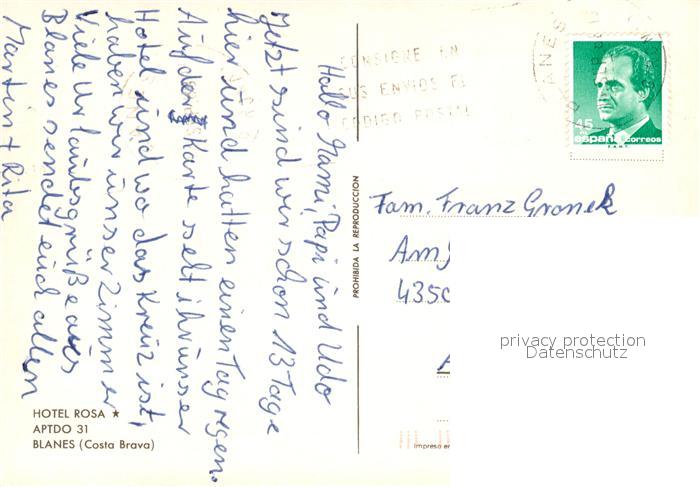 Hallo Mami, Papi und Udo
Jetzt sind wir schon 13 Tage
hier und hatten einen Tag regen.
Auf der Karte seht ihr unser
Hotel und wo das Kreuz ist,
haben wir unser Zimmer
Viele Urlaubsgrüße aus
Blanes sendet euch allen
Martin + Rita
HOTEL ROSA ★
APTDO 31
BLANES (Costa Brava)
PROHIBIDA LA REPRODUCCION
CONSIGNE EN
SUS ENVIOS EL
CODIGO POSTAL
ANES
45
españa correos
Fam. Franz Gronek
Am
435
privacy protection
Datenschutz
Impreso en